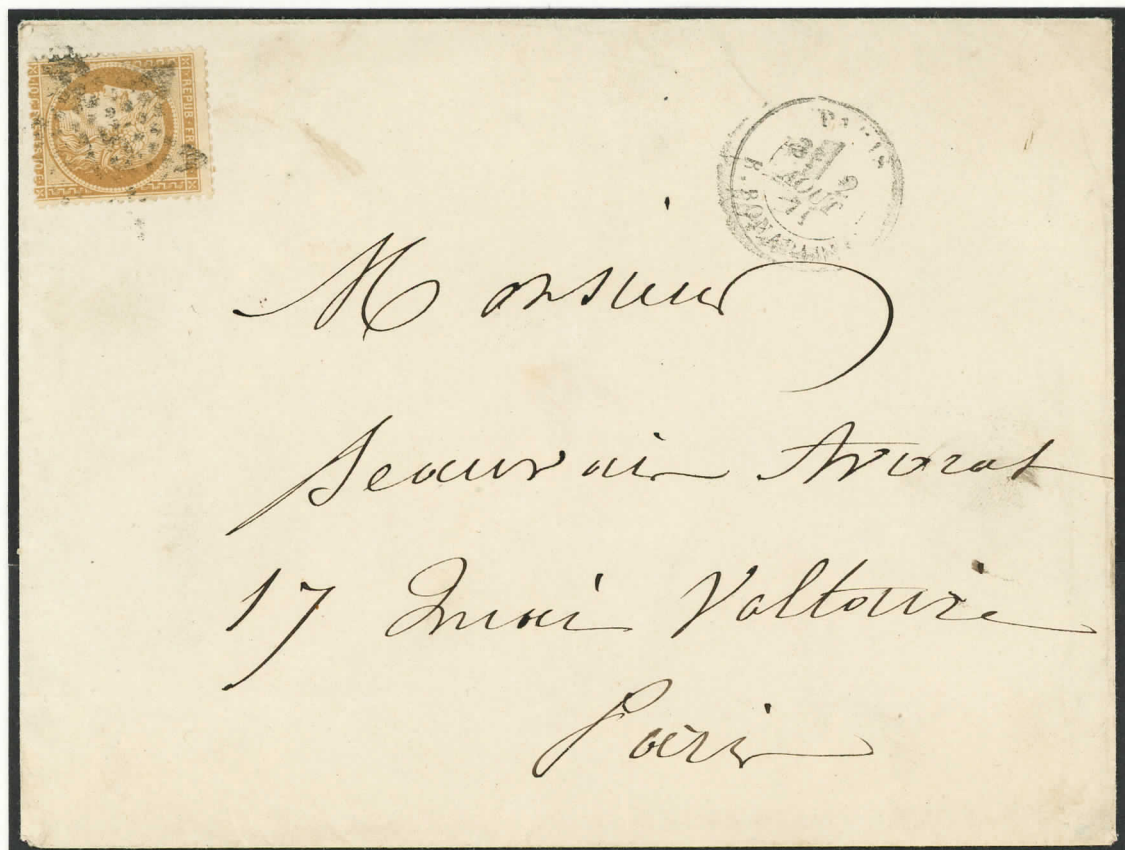 REPUB FR
PARIS
2
AOUT
71
R. BONAPARTE
Monsieur
Beauvais Avocat
17 Quai Voltaire
Paris